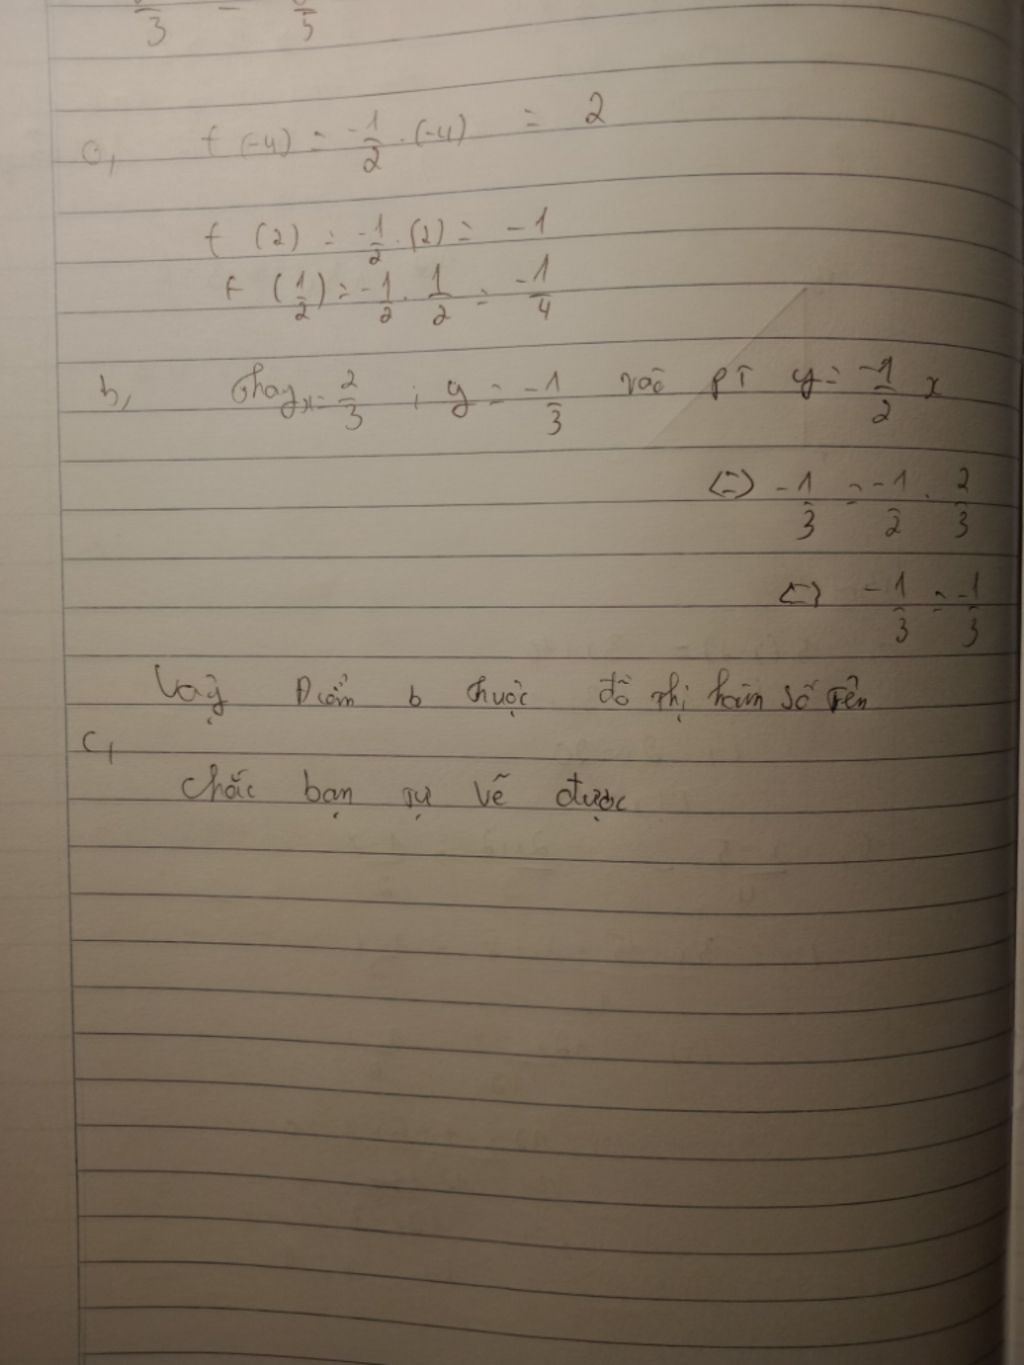 3 - 5
a, f (-4) = -1/2 . (-4) = 2
f (2) = -1/2 . (2) = -1
f (1/2) = -1/2 . 1/2 = -1/4
b, Thay x = 2/3 ; y = -1/3 vào pt y = -1/2 x
<=> -1/3 = -1/2 . 2/3
<=> -1/3 = -1/3
Vậy Điểm b thuộc đồ thị hàm số trên
c,
chắc bạn tự vẽ được